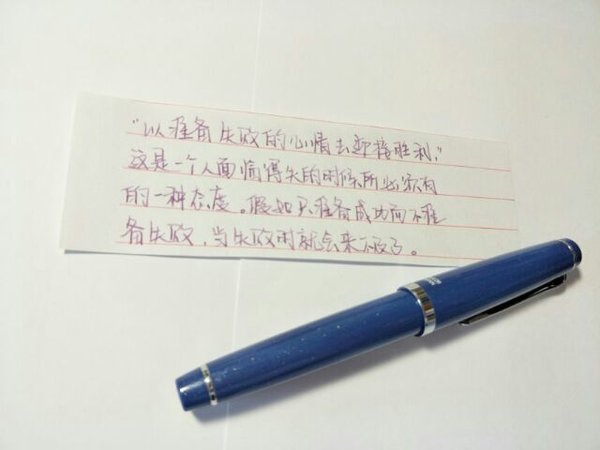 “以准备失败的心情去迎接胜利,”
这是一个人面临得失的时候所必须有
的一种态度。假如只准备成功而不准
备失败，当失败时就会来不及了。